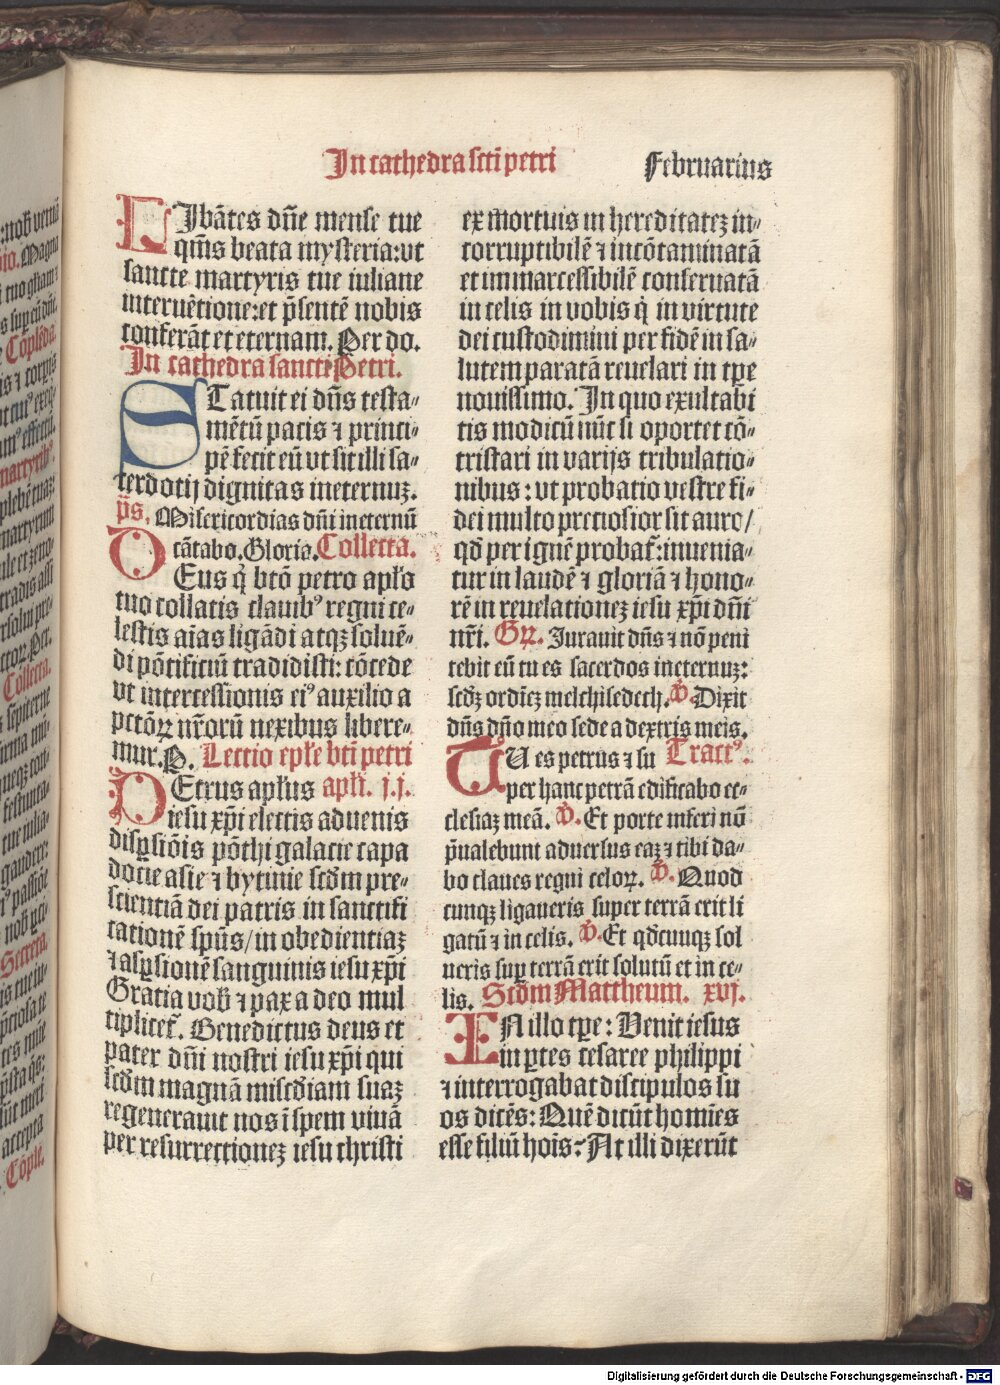 In cathedra scti petri
Februarius
LIbātes dn̄e mense tue
qm̄s beata mysteria: ut
sancte martyris tue iuliane
interuētione: et p̄sentē nobis
conferāt et eternam. Per do.
In cathedra sancti Petri.
STatuit ei dn̄s testa⸗
mētū pacis ⁊ princi⸗
pē fecit eū vt sit illi sa⸗
cerdotij dignitas ineternuꝫ.
p̄s. Misericordias dn̄i ineternū
cātabo. Gloria. Collecta.
DEus q̇ btō petro apl̄o
tuo collatis clauibꝰ regni ce⸗
lestis aīas ligādi atqꝫ soluē⸗
di pōtificiū tradidisti: cōcede
vt intercessionis eiꝰ auxilio a
pctōꝝ nr̄orū nexibus libere⸗
mur. P. Lectio epl̄e bti petri
PEtrus apl̄us apl̄i. j. j.
iesu xp̄i electis aduenis
disꝑsiōis pōthi galacie capa
docie asie ⁊ bytinie scd̄m pre⸗
scientiā dei patris in sanctifi
cationē spūs/ in obedientiaꝫ
⁊ asꝑsionē sanguinis iesu xp̄i
Gratia vob̄ ⁊ pax a deo mul
tiplicet̄. Benedictus deus et
pater dn̄i nostri iesu xp̄i qui
scd̄m magnā miscd̄iam suaꝫ
regenerauit nos ī spem viuā
per resurrectioneꝫ iesu christi
ex mortuis in hereditateꝫ in⸗
corruptibilē ⁊ incōtaminatā
et immarcessibilē conseruatā
in celis in vobis q̇ in virtute
dei custodimini per fidē in sa⸗
lutem paratā reuelari in tp̄e
nouissimo. In quo exultabi
tis modicū nūc si oportet cō⸗
tristari in varijs tribulatio⸗
nibus: vt probatio vestre fi⸗
dei multo preciosior sit auro/
qd̄ per ignē probat̄: inuenia⸗
tur in laudē ⁊ gloriā ⁊ hono⸗
rē in reuelationeꝫ iesu xp̄i dn̄i
nr̄i. Gꝝ. Iurauit dn̄s ⁊ nō peni
tebit eū tu es sacerdos ineternuꝫ:
scd̄ꝫ ordīeꝫ melchisedech. V̇. Dixit
dn̄s dn̄o meo sede a dextris meis.
TU es petrus ⁊ su Tractꝰ.
per hanc petrā edificabo ec⸗
clesiaꝫ meā. V̇. Et porte inferi nō
p̄ualebunt aduersus eaꝫ ⁊ tibi da⸗
bo claues regni celoꝝ. V̇. Quod
cunqꝫ ligaueris super terrā erit li
gatū ⁊ in celis. V̇. Et qd̄cunqꝫ sol
ueris suꝑ terrā erit solutū et in ce⸗
lis. Scd̄m Mattheum. xvj.
IN illo tp̄e: Venit iesus
in ꝑtes cesaree philippi
⁊ interrogabat discipulos su
os dicēs: Quē dicūt homīes
esse filiū hoīs? At illi dixerūt
Digitalisierung gefördert durch die Deutsche Forschungsgemeinschaft - DFG